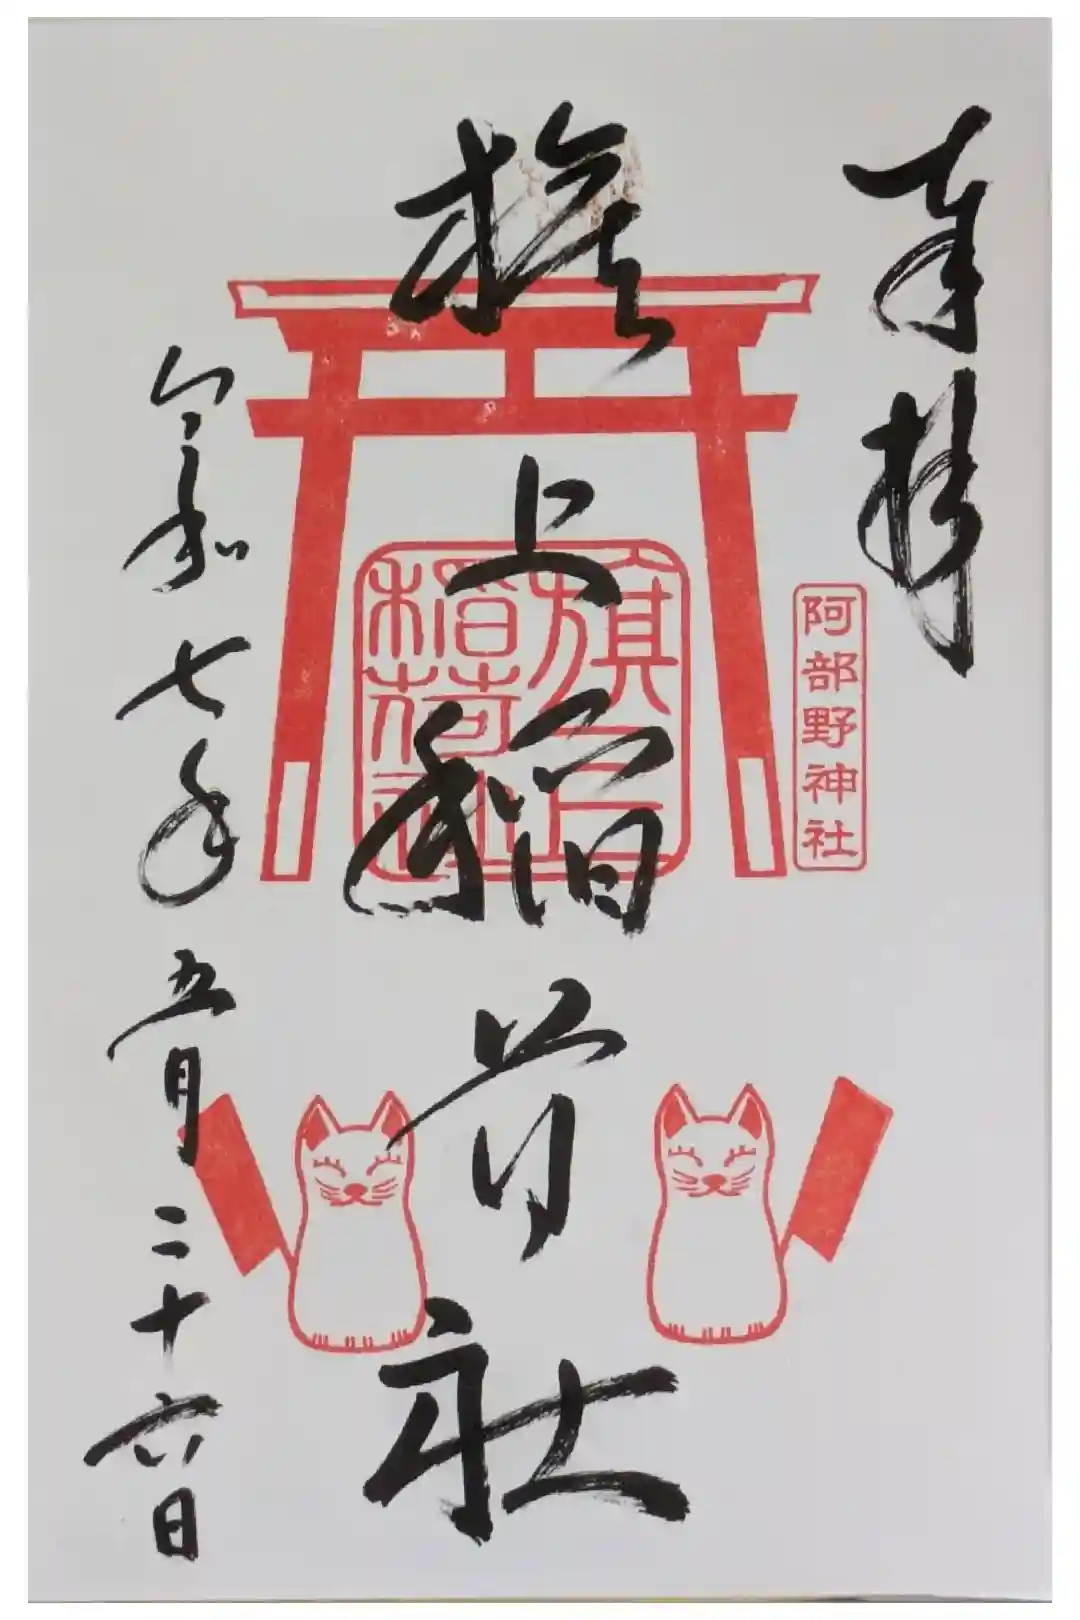 奉拝
阿部野神社
旗上稲荷社
旗上稲荷社
令和七年五月二十六日